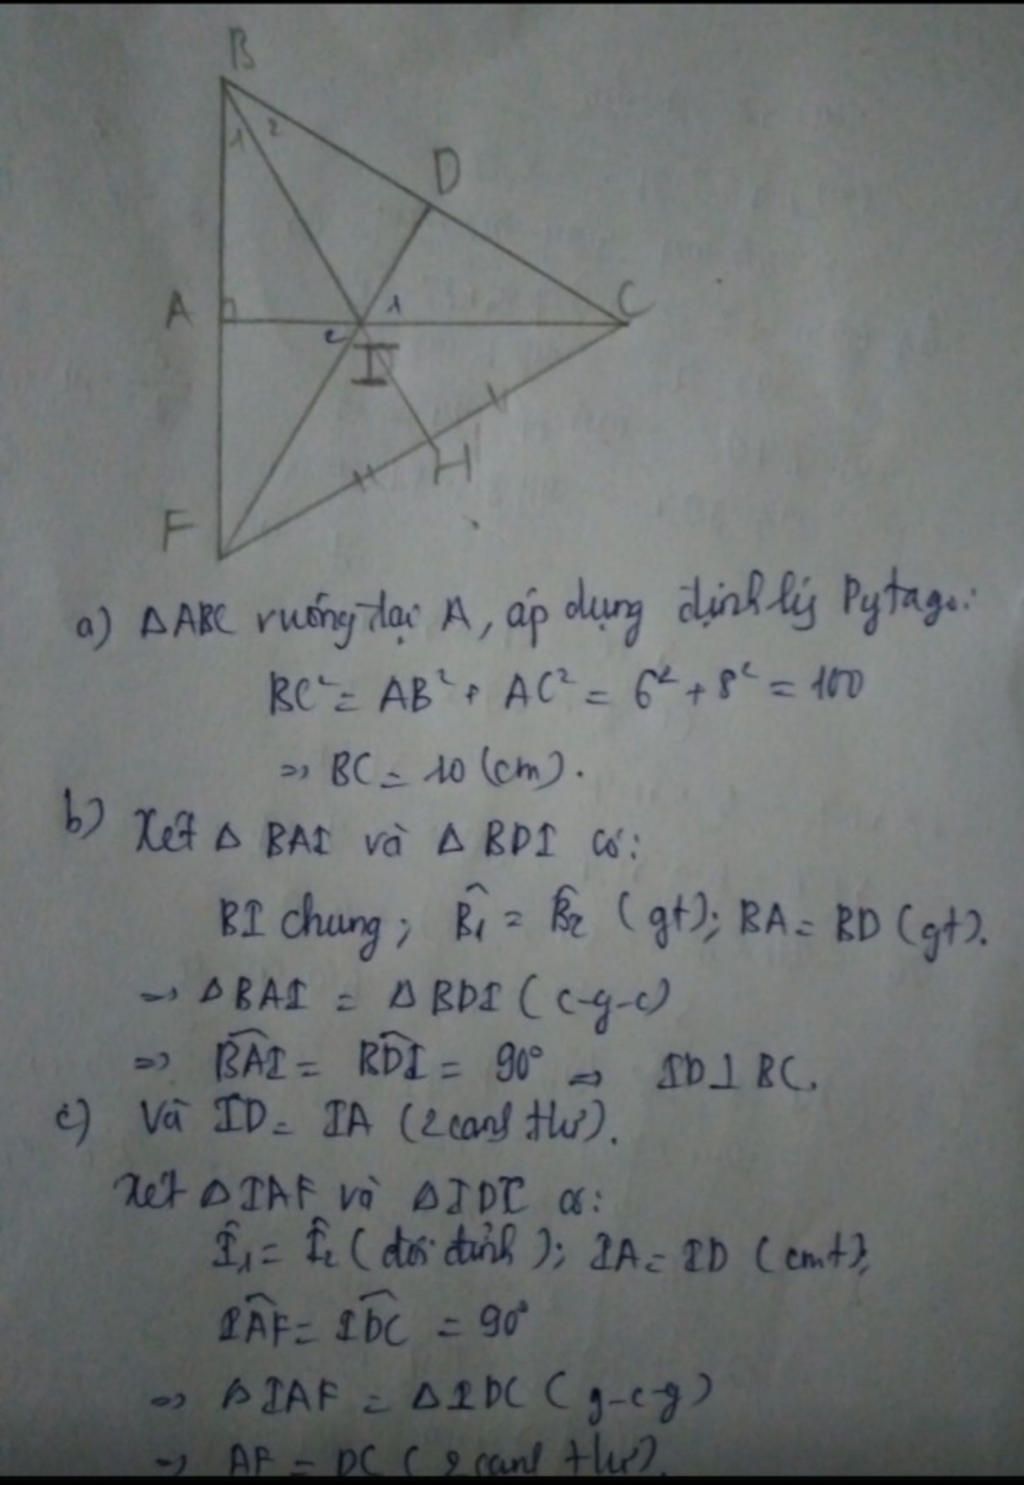 B
1 2
D
A
1
C
2
I
H
F
a) ΔABC vuông tại A, áp dụng định lý Pytago:
BC² = AB² + AC² = 6² + 8² = 100
=> BC = 10 (cm).
b) Xét Δ BAI và Δ BDI có:
BI chung; B̂₁ = B̂₂ (gt); BA = BD (gt).
=> ΔBAI = ΔBDI (c-g-c)
=> BAI = BDI = 90° => ID⊥BC.
c) Và ID = IA (2 cạnh t/ư).
Xét ΔIAF và ΔIDC có:
Î₁ = Î₂ (đối đỉnh); IA = ID (cmt);
IAF = IDC = 90°
=> ΔIAF = ΔIDC (g-c-g)
=> AF = DC (2 cạnh t/ư).